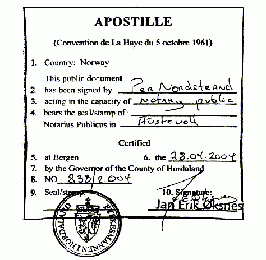 APOSTILLE
(Convention de La Haye du 5 octobre 1961)
1. Country: Norway
This public document
2. has been signed by Per Nordstrand
3. acting in the capacity of notary public
4. bears the seal/stamp of
Notarius Publicus in Austevoll
Certified
5. at Bergen 6. the 28.04.2004
7. by the Governor of the County of Hordaland
8. NO 838/2004
9. Seal/stamp 10. Signature:
Jan Erik Øksnes